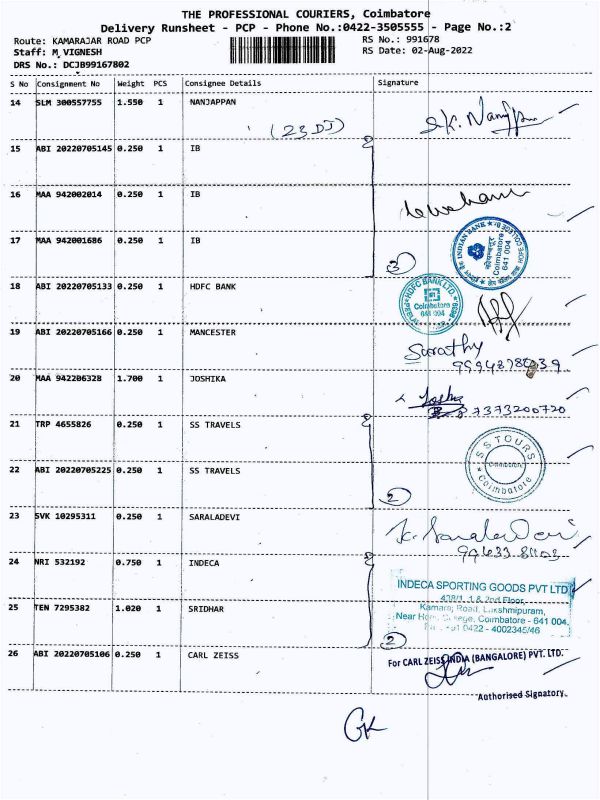 THE PROFESSIONAL COURIERS, Coimbatore
Delivery Runsheet - PCP - Phone No.:0422-3505555 - Page No.:2
Route: KAMARAJAR ROAD PCP RS No.: 991678
Staff: M_VIGNESH RS Date: 02-Aug-2022
DRS No.: DCJB99167802
S No Consignment No Weight PCS Consignee Details Signature
14 SLM 300557755 1.550 1 NANJAPPAN
(23DJ)
15 ABI 20220705145 0.250 1 IB
16 MAA 942002014 0.250 1 IB
17 MAA 942001686 0.250 1 IB
3
INDIAN BANK
Coimbatore
641 004
18 ABI 20220705133 0.250 1 HDFC BANK
HDFC BANK LTD.
Coimbatore
641 004
19 ABI 20220705166 0.250 1 MANCESTER
Sarathy
20 MAA 942206328 1.700 1 JOSHIKA
7373200720
21 TRP 4655826 0.250 1 SS TRAVELS
22 ABI 20220705225 0.250 1 SS TRAVELS
2
SS TOURS
Coimbatore
Coimbatore
23 SVK 10295311 0.250 1 SARALADEVI
24 NRI 532192 0.750 1 INDECA
INDECA SPORTING GOODS PVT LTD
Kamaraj Road, Lakshmipuram,
25 TEN 7295382 1.020 1 SRIDHAR
Coimbatore - 641 004.
0422 - 4002345/46
2
26 ABI 20220705106 0.250 1 CARL ZEISS
For CARL ZEISS INDIA (BANGALORE) PVT. LTD.
Authorised Signatory.